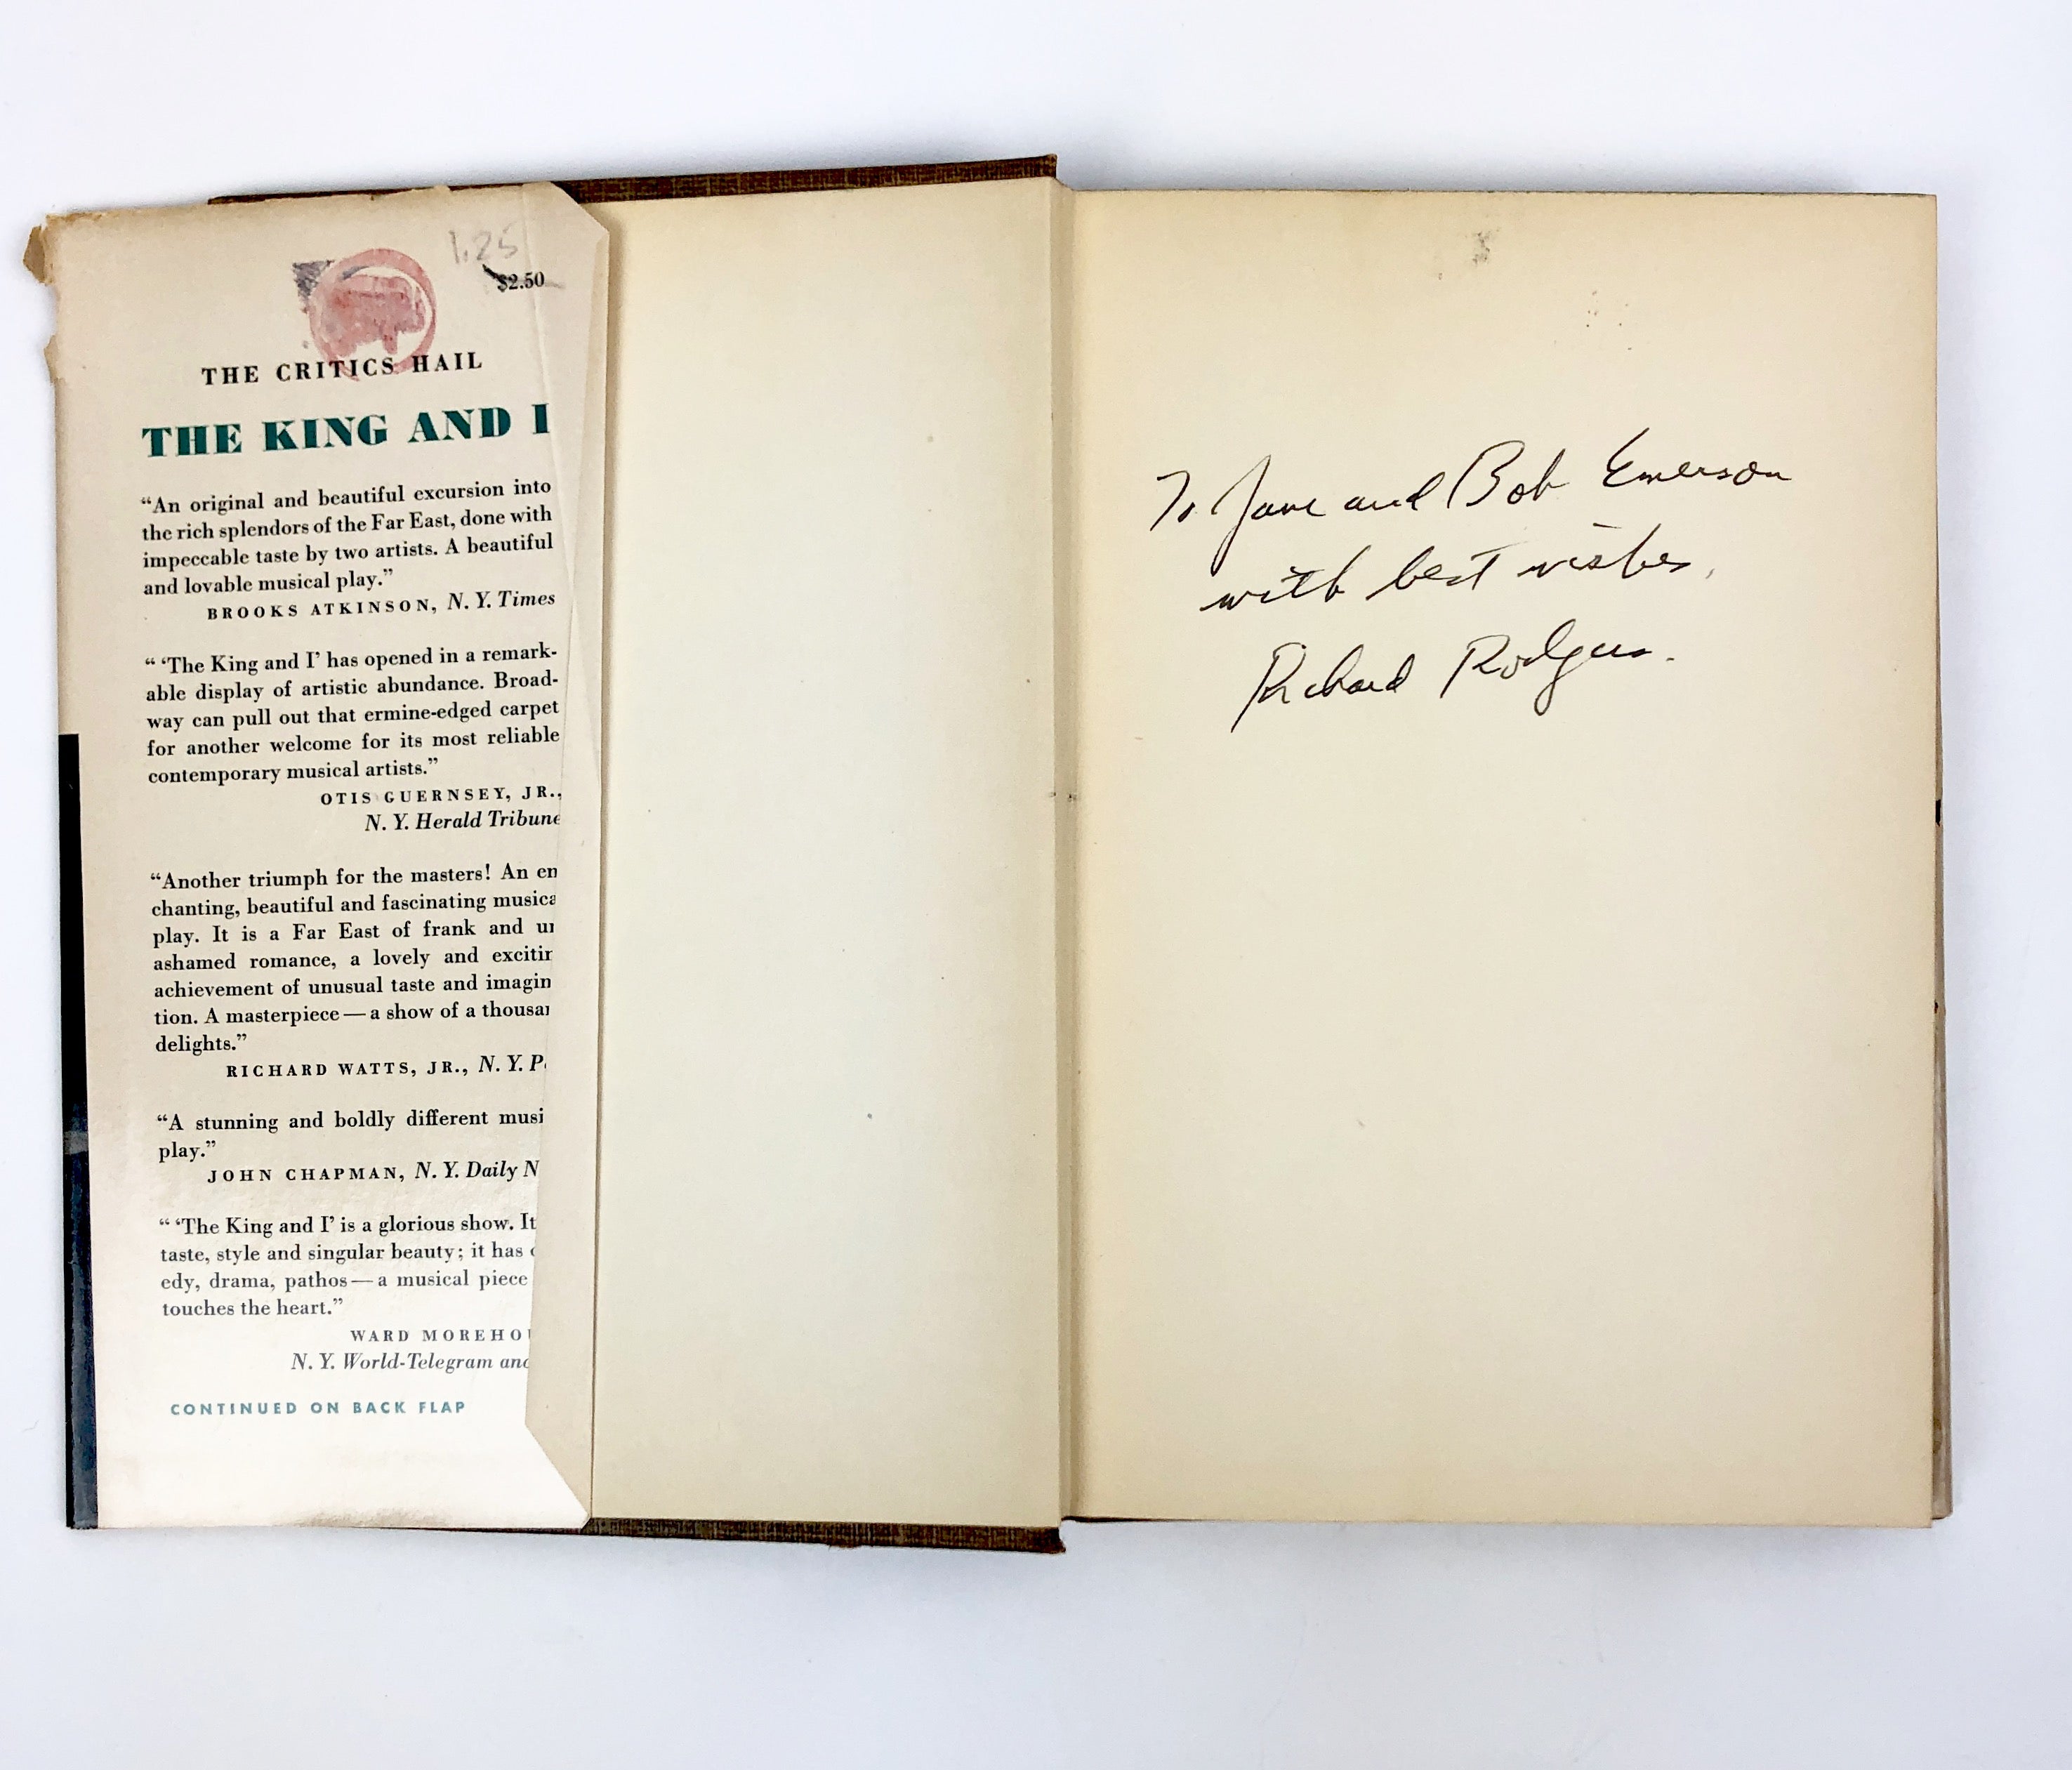 1.25
$2.50
THE CRITICS HAIL
THE KING AND I
“An original and beautiful excursion into
the rich splendors of the Far East, done with
impeccable taste by two artists. A beautiful
and lovable musical play.”
BROOKS ATKINSON, N. Y. Times
“ ‘The King and I’ has opened in a remark-
able display of artistic abundance. Broad-
way can pull out that ermine-edged carpet
for another welcome for its most reliable
contemporary musical artists.”
OTIS GUERNSEY, JR.,
N. Y. Herald Tribune
“Another triumph for the masters! An en
chanting, beautiful and fascinating musica
play. It is a Far East of frank and un
ashamed romance, a lovely and excitin
achievement of unusual taste and imagin
tion. A masterpiece — a show of a thousan
delights.”
RICHARD WATTS, JR., N. Y. P
“A stunning and boldly different musi
play.”
JOHN CHAPMAN, N. Y. Daily N
“ ‘The King and I’ is a glorious show. It
taste, style and singular beauty; it has
edy, drama, pathos — a musical piece
touches the heart.”
WARD MOREHOU
N. Y. World-Telegram and
CONTINUED ON BACK FLAP
To Jane and Bob Emerson
with best wishes,
Richard Rodgers.